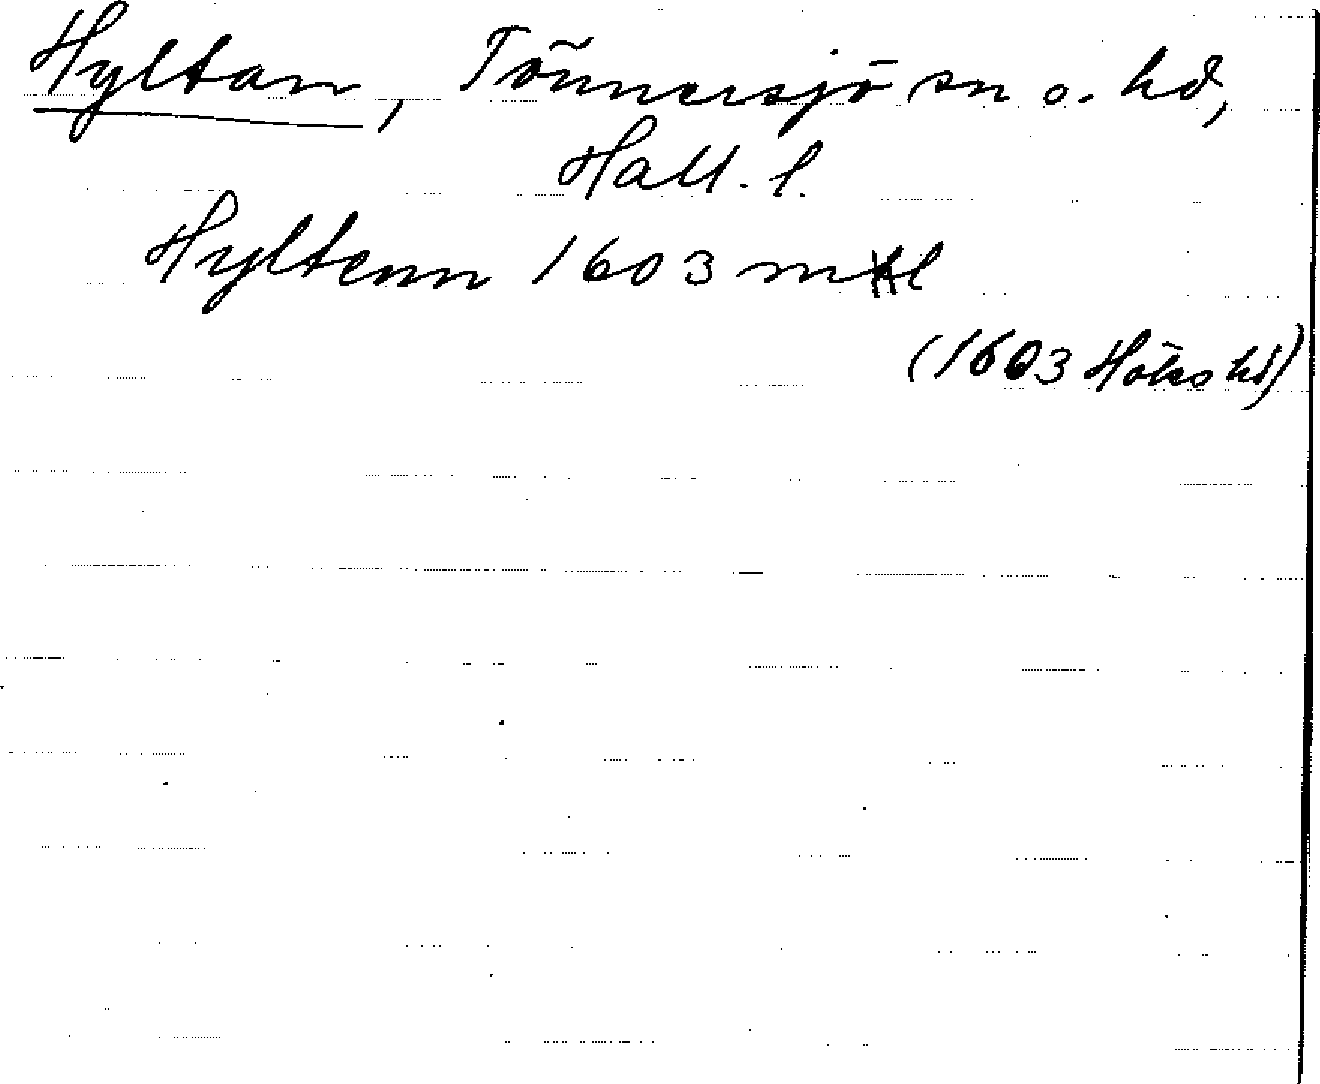 Hyltan, Tönnersjö sn o. hd,
Hall. l.
Hyltenn 1603 mtl
(1603 Höks hd)